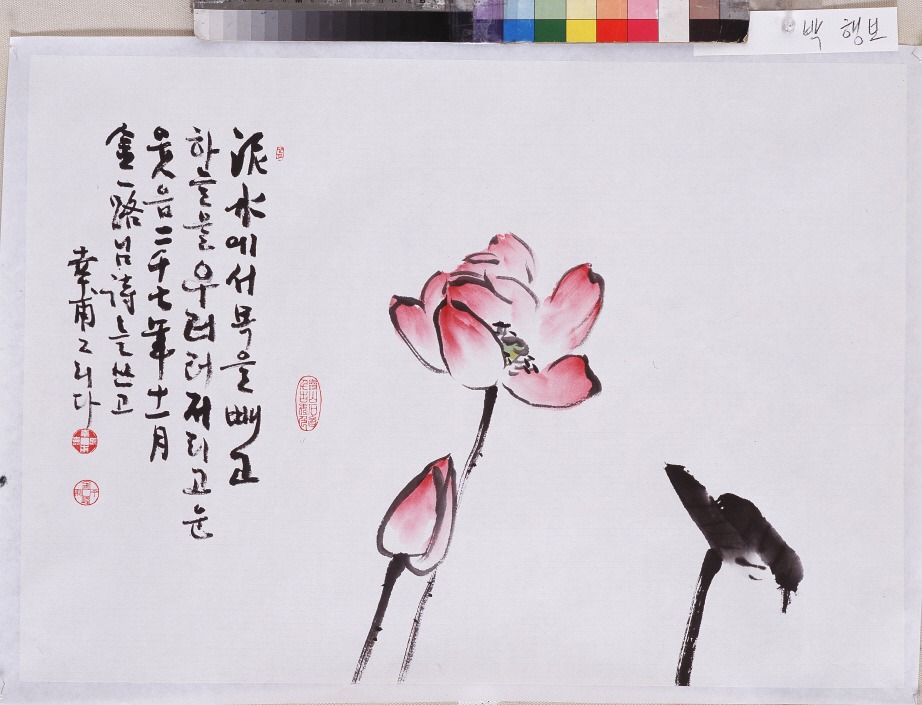 泥水에서 목을 빼고
하늘을 우러러 저리고운
웃음 二千七年 十一月
金一路님 詩를 쓰고
幸甫그리다
백 행보